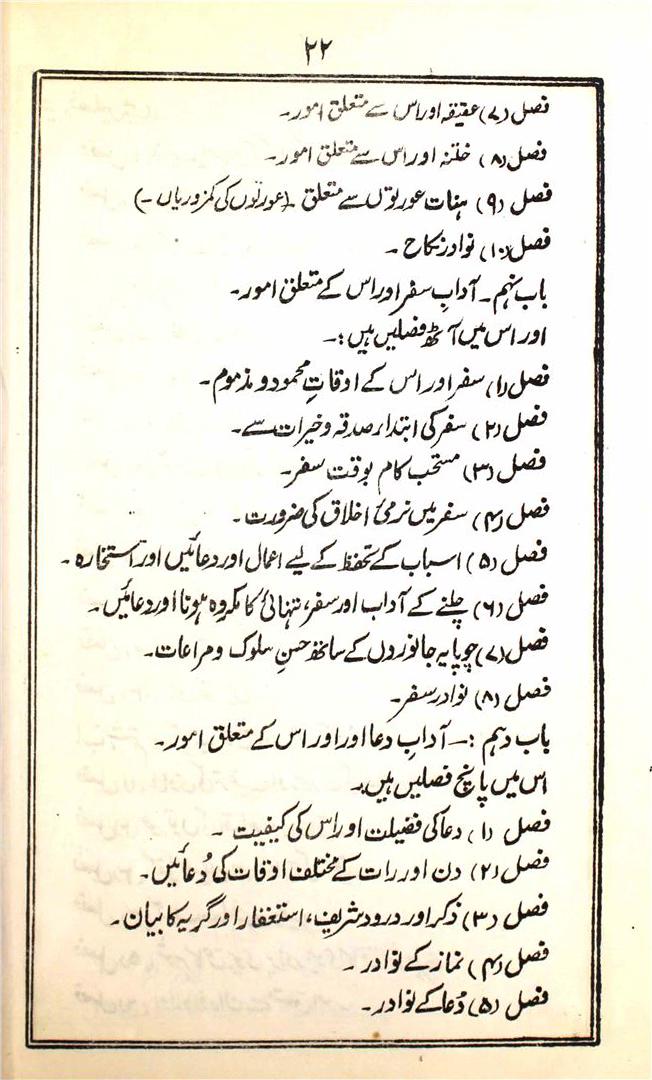 ۲۲
فصل (۷) عقیقہ اور اس سے متعلق امور۔
فصل (۸) ختنہ اور اس سے متعلق امور۔
فصل (۹) ہنات عورتوں سے متعلق ۔ (عورتوں کی کمزوریاں ۔)
فصل (۱۰) نوادر نکاح ۔
باب نہم ۔ آدابِ سفر اور اس کے متعلق امور۔
اور اس میں آٹھ فصلیں ہیں :۔
فصل (۱) سفر اور اس کے اوقاتِ محمود و مذموم۔
فصل (۲) سفر کی ابتداء صدقہ و خیرات سے۔
فصل (۳) مستحب کام بوقت سفر۔
فصل (۴) سفر میں نرمیٔ اخلاق کی ضرورت ۔
فصل (۵) اسباب کے تحفظ کے لیے اعمال اور دعائیں اور استخارہ ۔
فصل (۶) چلنے کے آداب اور سفر، تنہائی کا مکروہ ہونا اور دعائیں۔
فصل (۷) چوپایہ جانوروں کے ساتھ حسنِ سلوک و مراعات۔
فصل (۸) نوادر سفر۔
باب دہم :۔ آدابِ دعا اور اور اس کے متعلق امور۔
اس میں پانچ فصلیں ہیں۔
فصل (۱) دعا کی فضیلت اور اس کی کیفیت ۔
فصل (۲) دن اور رات کے مختلف اوقات کی دُعائیں۔
فصل (۳) ذکر اور درود شریف، استغفار اور گریہ کا بیان۔
فصل (۴) نماز کے نوادر ۔
فصل (۵) دُعا کے نوادر ۔